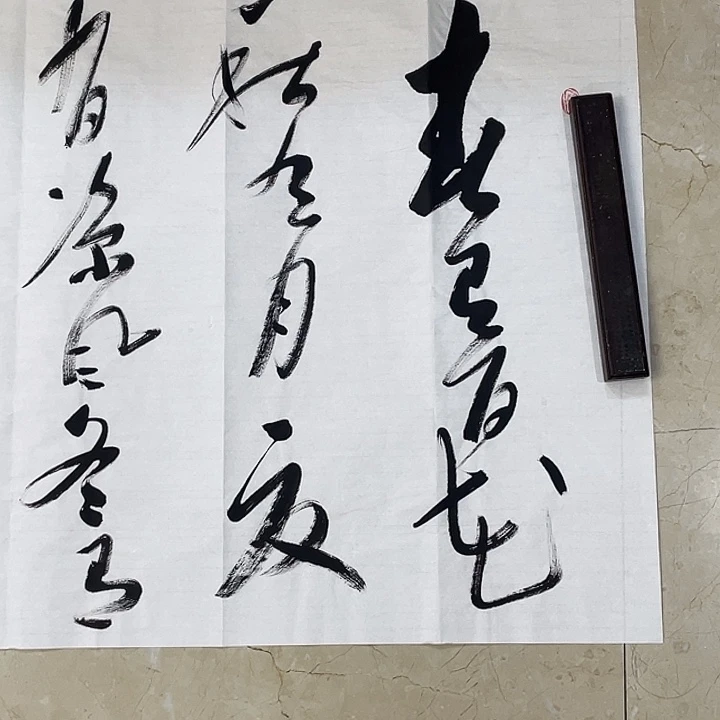 春有百花
秋有月夏
有凉風冬有